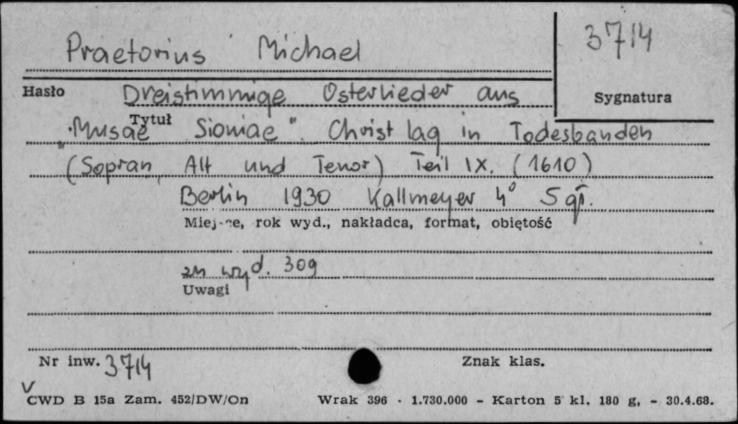 Praetorius Michael
3714
Hasło
Dreistimmige Osterlieder aus
Sygnatura
Tytuł
"Musae Sioniae". Christ lag in Todesbanden
(Sopran, Alt und Tenor) Teil IX. (1610)
Berlin 1930 Kallmeyer 4° S
Miejsce, rok wyd., nakładca, format, obiętość
wyd. 309
Uwagi
Nr inw. 3714
Znak klas.
CWD B 15a Zam. 452/DW/On
Wrak 396 · 1.730.000 - Karton 5 kl. 180 g. - 30.4.68.